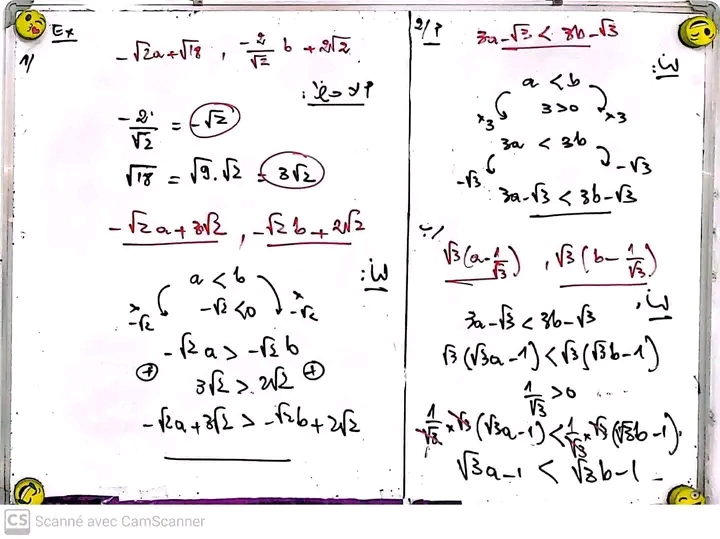 Ex
1/
-√2a+√18 , -2/√2 b + 2√2
-2/√2 = -√2
√18 = √9.√2 = 3√2
-√2a+3√2 , -√2b+2√2
لدينا :
a < b
×-√2 -√2<0 ×-√2
-√2a > -√2b
+ 3√2 > 2√2 +
-√2a+3√2 > -√2b+2√2
2/ أ
3a-√3 < 3b-√3
لدينا :
a < b
×3 3>0 ×3
3a < 3b
-√3 -√3
3a-√3 < 3b-√3
ب/
√3(a-1/√3) , √3(b-1/√3)
لدينا ,
3a-√3 < 3b-√3
√3(√3a-1) < √3(√3b-1)
1/√3 > 0
1/√3 × √3(√3a-1) < 1/√3 × √3(√3b-1)
√3a-1 < √3b-1
CS Scanné avec CamScanner